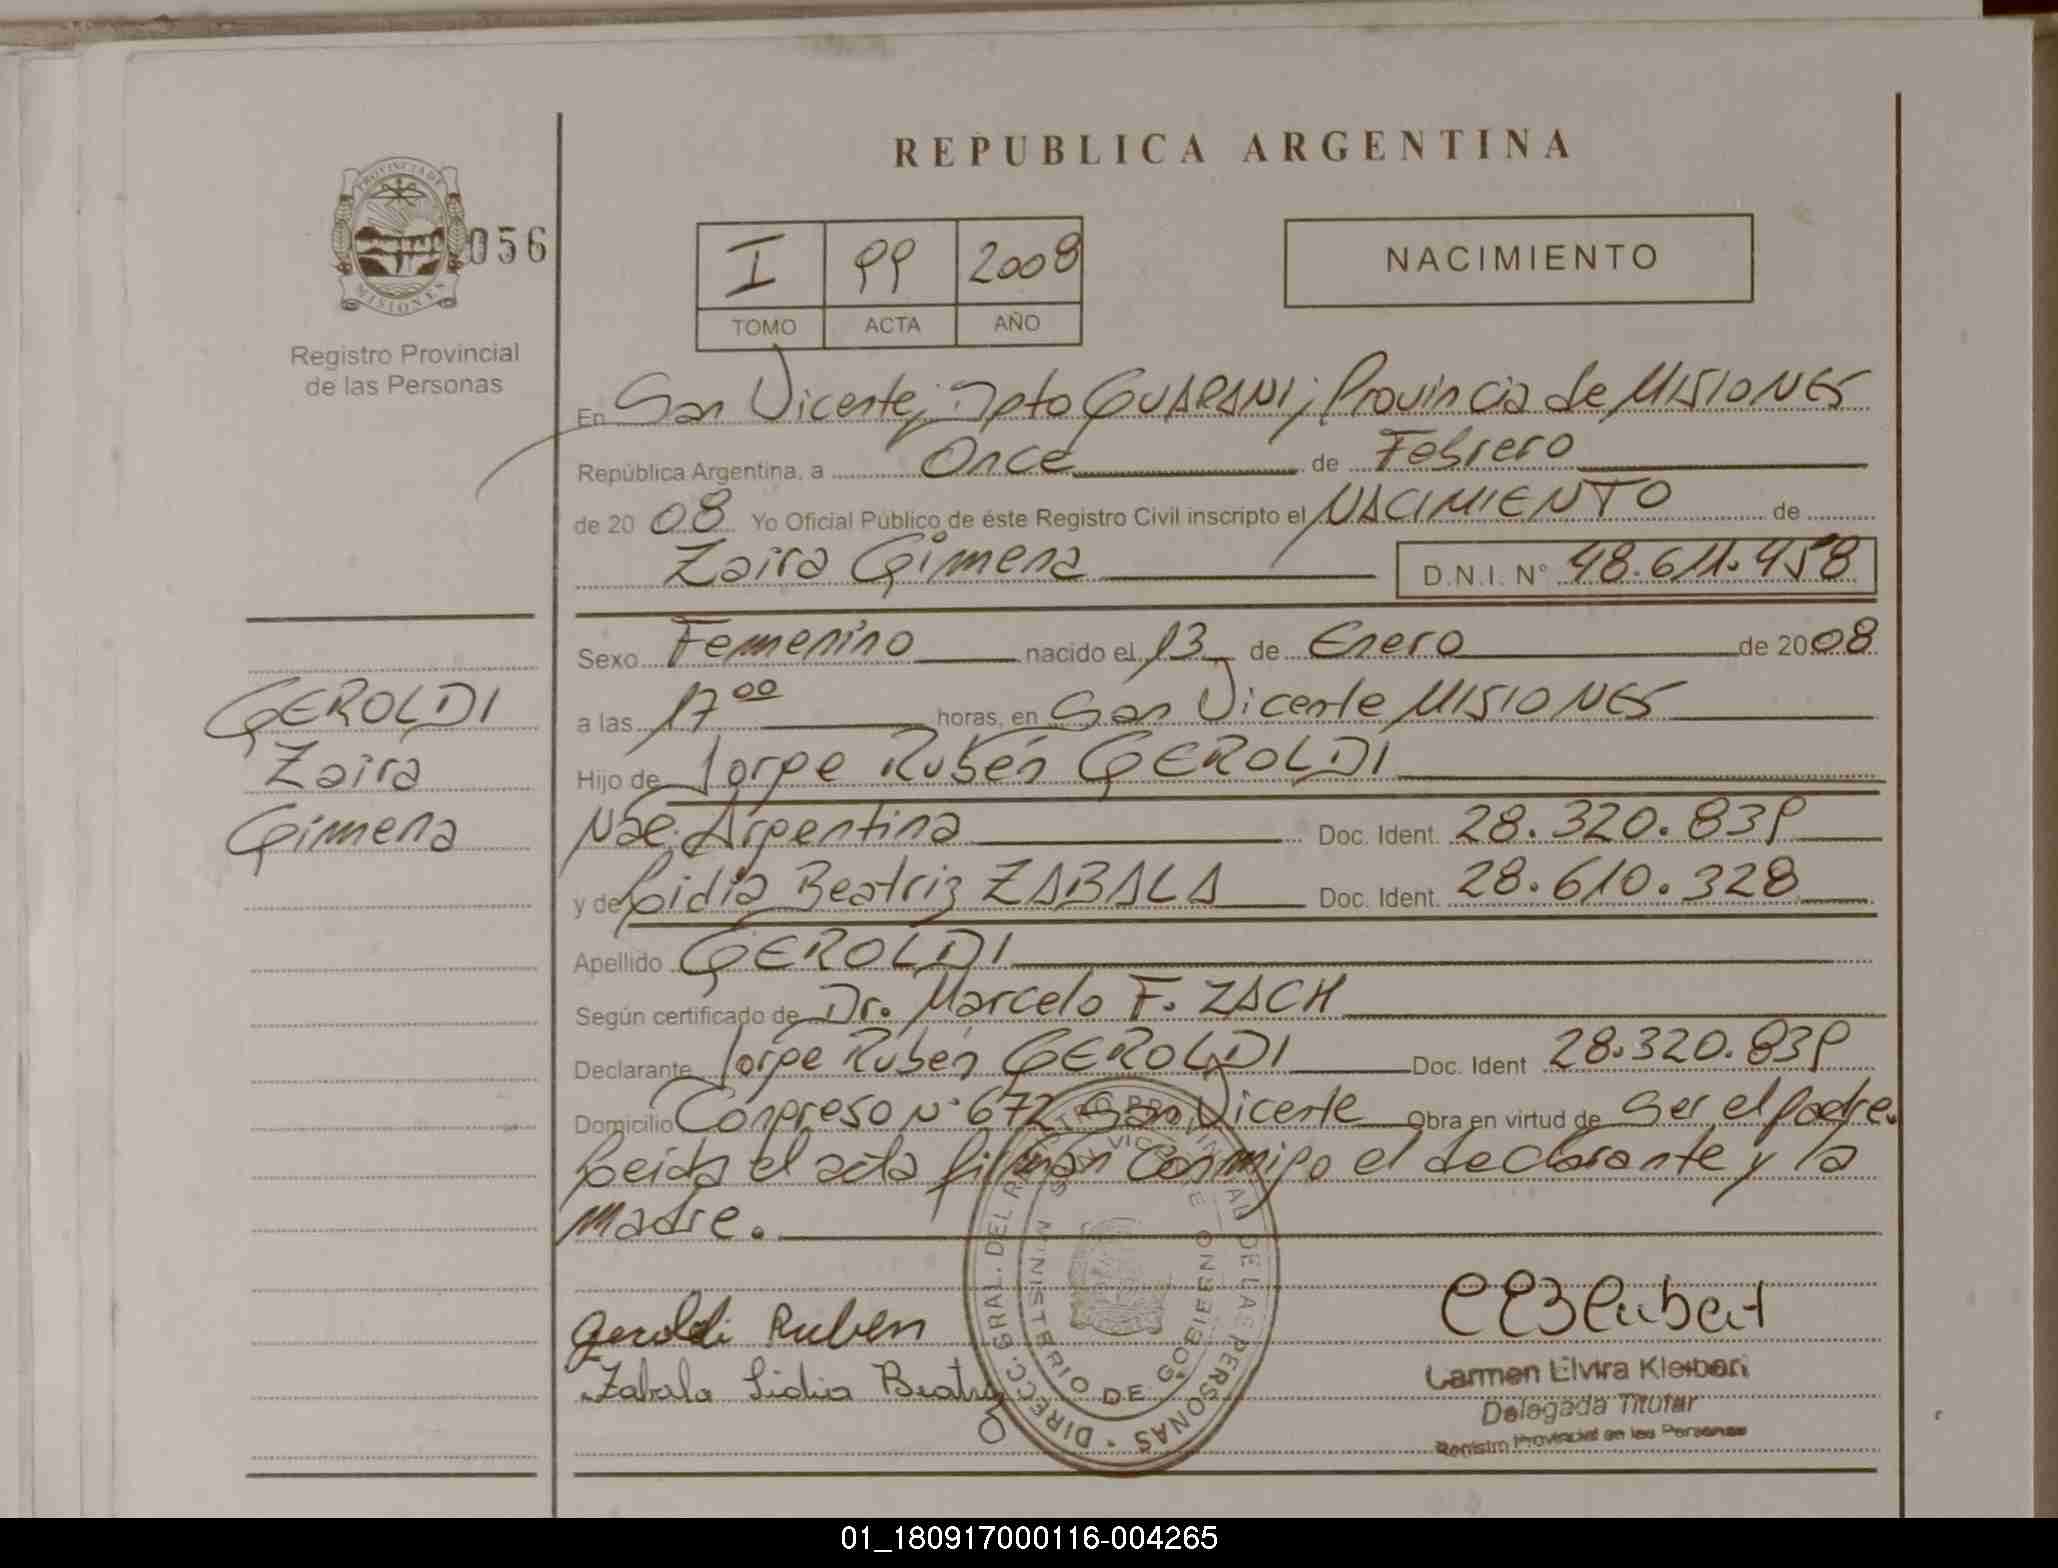 REPUBLICA ARGENTINA
PROVINCIA DE
MISIONES
056
Registro Provincial
de las Personas
I 99 2008
TOMO ACTA AÑO
NACIMIENTO
En San Vicente, Dpto GUARANI; Provincia de MISIONES
República Argentina, a Once de Febrero
de 20 08 Yo Oficial Público de éste Registro Civil inscripto el NACIMIENTO de
Zaira Gimena D.N.I. N° 48.611.458
Sexo Femenino nacido el 13 de Enero de 2008
GEROLDI
Zaira
Gimena
a las 17 00 horas, en San Vicente MISIONES
Hijo de Jorge Rubén GEROLDI
Nac. Argentina Doc. Ident. 28.320.839
y de Lidia Beatriz ZABALA Doc. Ident. 28.610.328
Apellido GEROLDI
Según certificado de Dr. Marcelo F. ZACH
Declarante Jorge Rubén GEROLDI Doc. Ident 28.320.839
Domicilio Congreso N° 672 San Vicente Obra en virtud de Ser el padre.
Leida el acta firman conmigo el declarante y la
madre.
Geroldi Ruben
Zabala Lidia Beatriz
DIRECC. GRAL. DEL REGISTRO PROVINCIAL DE LAS PERSONAS
MINISTERIO DE GOBIERNO
SAN VICENTE
Carmen Elvira
Delegada Titular
Registro Provincial de las Personas
01_180917000116-004265